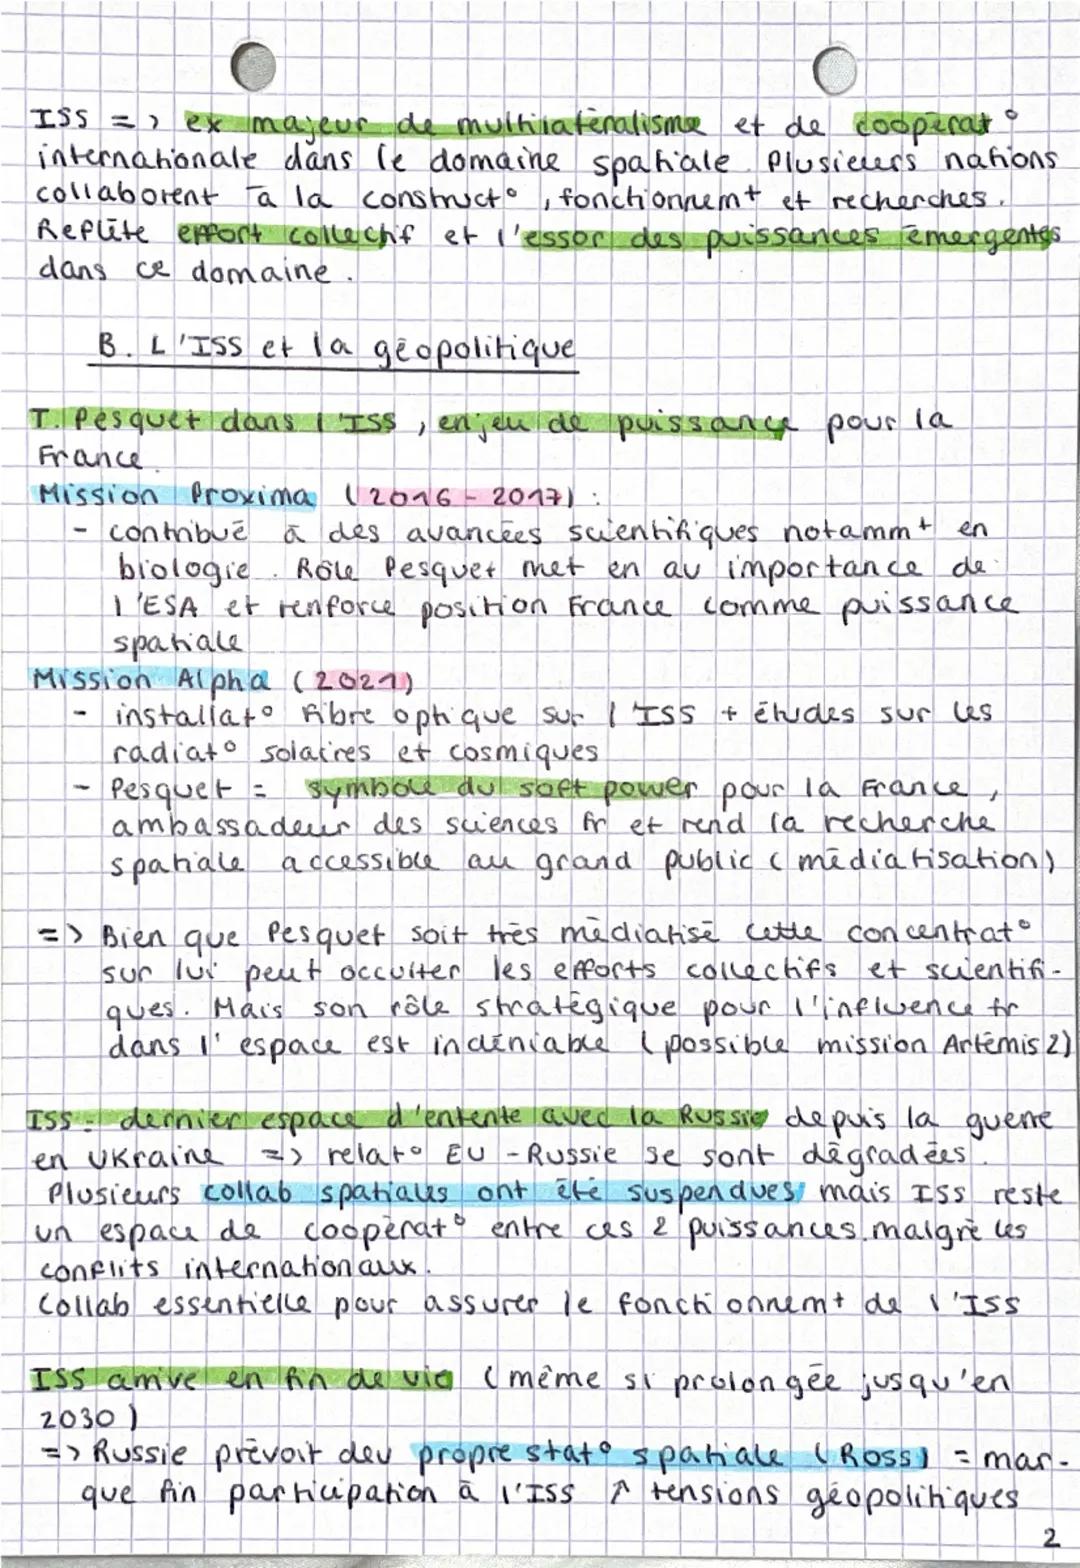 ISS => ex majeur de multilatéralisme et de coopérat°
internationale dans le domaine spatiale. Plusieurs nations
collaborent à la construct°, fonctionnemt et recherches.
Reflète effort collectif et l'essor des puissances émergentes
dans ce domaine.
B. L'ISS et la géopolitique
T. Pesquet dans l'ISS, enjeu de puissance pour la
France.
Mission Proxima (2016-2017) :
- contribué à des avancées scientifiques notammt en
biologie. Rôle Pesquet met en av importance de
l'ESA et renforce position France comme puissance
spatiale
Mission Alpha (2021)
- installat° fibre optique sur l'ISS + études sur les
radiat° solaires et cosmiques
- Pesquet = symbole du soft power pour la France,
ambassadeur des sciences fr et rend la recherche
spatiale accessible au grand public (médiatisation)
=> Bien que Pesquet soit très médiatisé cette concentrat°
sur lui peut occulter les efforts collectifs et scientifi-
ques. Mais son rôle stratégique pour l'influence fr
dans l'espace est indéniable (possible mission Artémis 2)
ISS = dernier espace d'entente avec la Russie depuis la guerre
en Ukraine => relat° EU - Russie se sont dégradées.
Plusieurs collab spatiales ont été suspendues mais ISS reste
un espace de coopérat° entre ces 2 puissances malgré les
conflits internationaux.
Collab essentielle pour assurer le fonctionnemt de l'ISS
ISS arrive en fin de vie (même si prolongée jusqu'en
2030)
=> Russie prévoit dev propre stat° spatiale (Ross) = mar-
que fin participation à l'ISS ↗ tensions géopolitiques
2